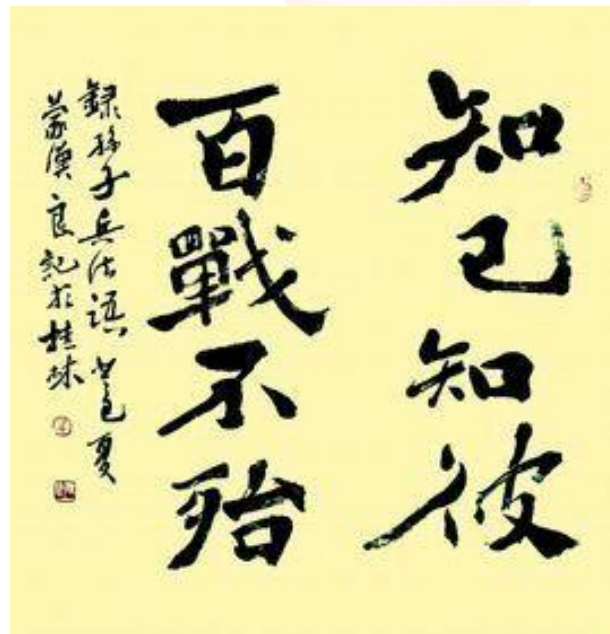 知己知彼
百戰不殆
錄孫子兵法語 夏
蒙 良記於桂林